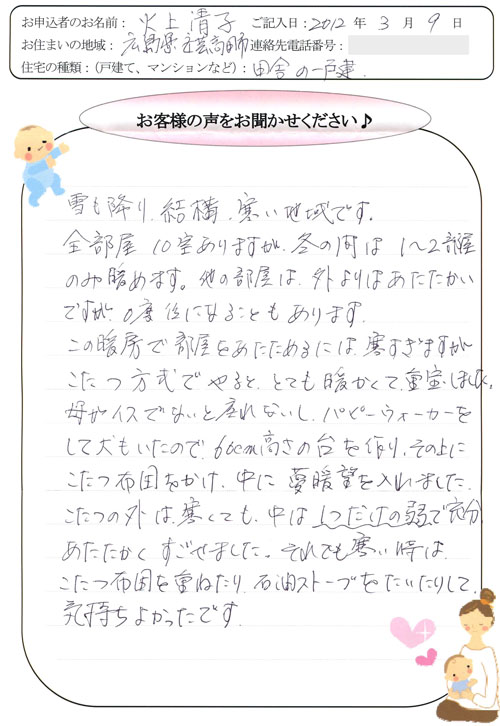 お申込者のお名前： 火上清子 ご記入日：2012年 3月 9日
お住まいの地域： 広島県安芸高田市 連絡先電話番号：
住宅の種類：（戸建て、マンションなど）： 田舎の一戸建
お客様の声をお聞かせください♪
雪も降り、結構、寒い地域です。
全部屋 10室ありますが、冬の間は 1〜2部屋
のみ暖めます。他の部屋は、外よりはあたたかい
ですが、0度位になることもあります。
この暖房で部屋をあたためるには、寒すぎますが
こたつ方式でやると、とても暖かくて、重宝しました。
母がイスでないと座れないし、パピーウォーカーを
して犬もいたので、60cm高さの台を作り、その上に
こたつ布団をかけ、中に夢暖望を入れました。
こたつの外は、寒くても、中は1つだけの弱で充分
あたたかくすごせました。それでも寒い時は、
こたつ布団を重ねたり、石油ストーブをたいたりして、
気持ちよかったです。